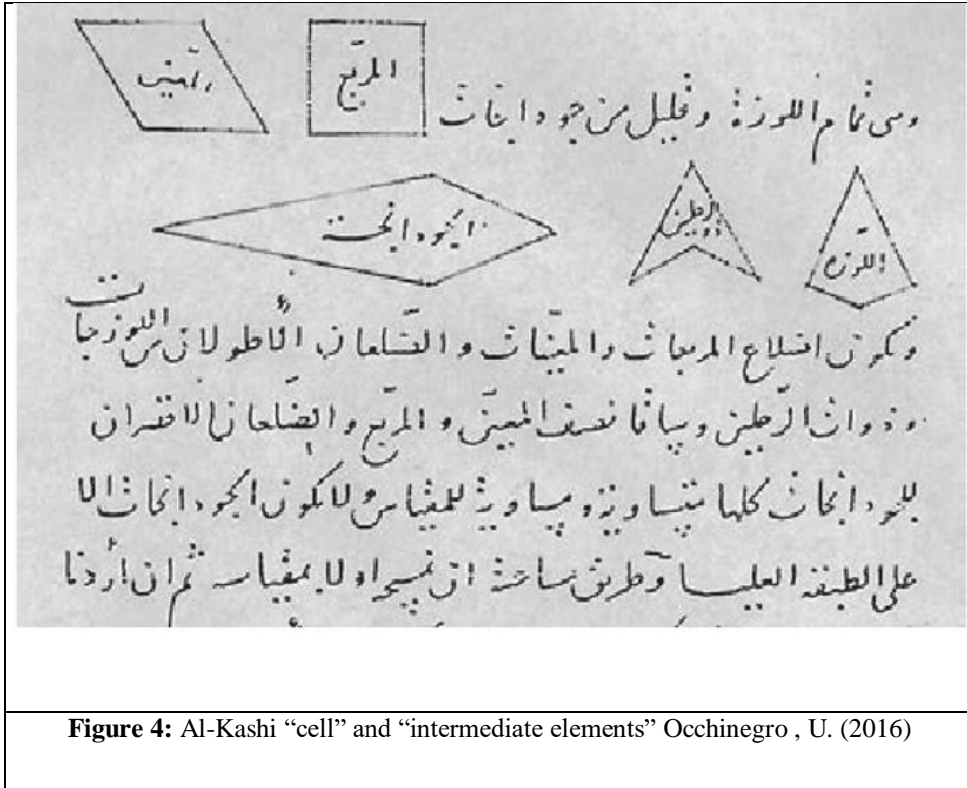 المعين المربع
وهى تمام اللوزة وقليل من
ذو الرجلين اللوزة
وتكون اضلاع المربعات والمعينات والضلعان الأطولان من
وذوات الرجلين وساقا نصف المعين و المربع والضلعان الاقصران
كلها متساوية ومساوية للمقياس لا تكون الا
على الطبقة العليا وطريق مساحة ان اولا بمقياس ثم ان أردنا
Figure 4: Al-Kashi “cell” and “intermediate elements” Occhinegro , U. (2016)